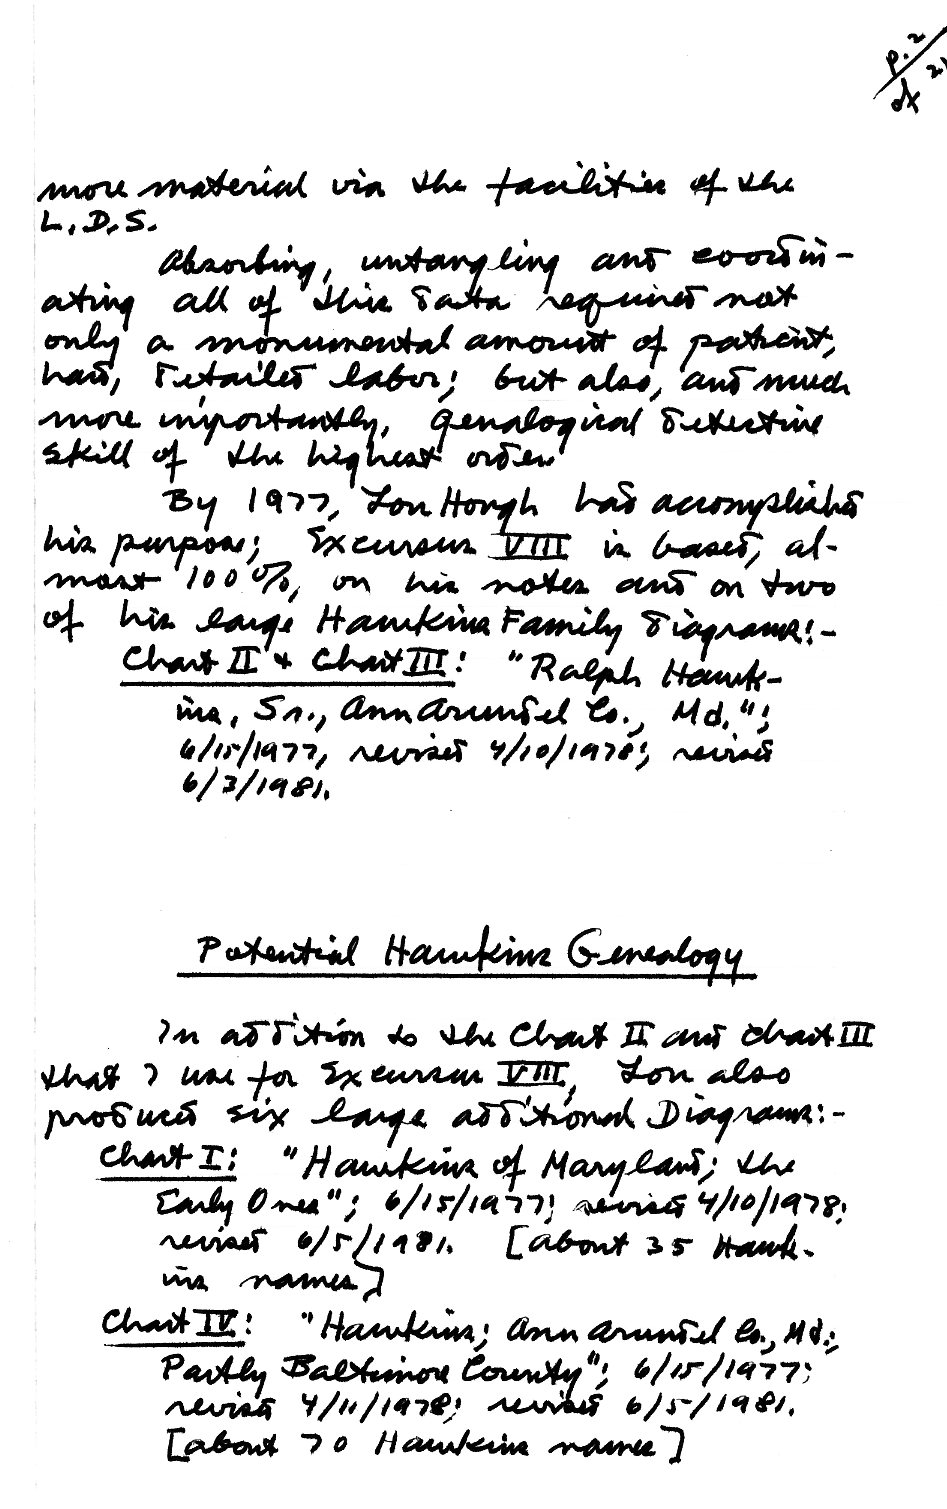 p. 2
of 21
more material via the facilities of the
L.D.S.
Absorbing, untangling and coordin-
ating all of this data required not
only a monumental amount of patient,
hard, detailed labor; but also, and much
more importantly, genalogical detective
skill of the highest order.
By 1977, Lon Hough had accomplished
his purpose; Excursus VIII is based, al-
most 100%, on his notes and on two
of his large Hawkins Family diagrams:-
Chart II & Chart III: "Ralph Hawk-
ins, Sr., Ann Arundel Co., Md.";
6/15/1977, revised 4/10/1978; revised
6/3/1981.
Potential Hawkins Genealogy
In addition to the Chart II and Chart III
that I use for Excursus VIII, Lon also
produced six large additional Diagrams:-
Chart I: "Hawkins of Maryland; the
Early Ones"; 6/15/1977; revised 4/10/1978;
revised 6/5/1981. [about 35 Hawk-
ins names]
Chart IV: "Hawkins; Ann Arundel Co., Md.;
Partly Baltimore County"; 6/15/1977;
revised 4/11/1978; revised 6/5/1981.
[about 70 Hawkins names]